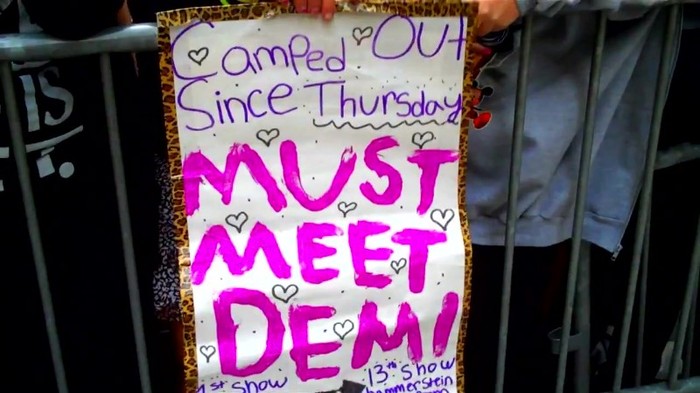 Camped Out
Since Thursday
MUST
MEET
DEMI
1st Show
13th Show
hammerstein